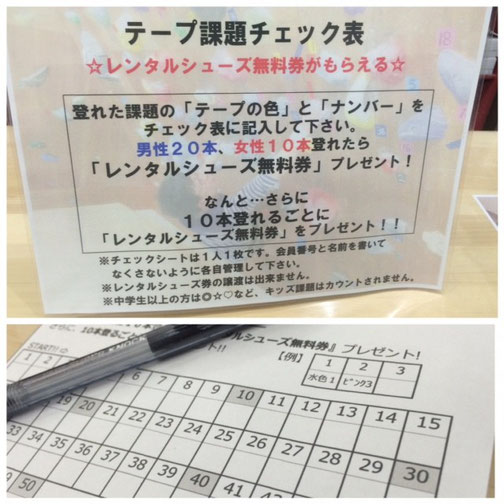 テープ課題チェック表
☆レンタルシューズ無料券がもらえる☆
登れた課題の「テープの色」と「ナンバー」を
チェック表に記入して下さい。
男性20本、女性10本登れたら
「レンタルシューズ無料券」プレゼント!
なんと…さらに
10本登れるごとに
「レンタルシューズ無料券」をプレゼント!!
※チェックシートは1人1枚です。会員番号と名前を書いて
なくさないように各自管理して下さい。
※レンタルシューズ券の譲渡は出来ません。
※中学生以上の方は◎☆♡など、キッズ課題はカウントされません。
18
シューズ無料券』プレゼント!
さらに、10本登る
ト!!
【例】
1 2 3
水色1 ピンク3
START!!
1 2 10 11 12 13 14 15
18 19 20 21 22 23 24 25 26 27 28 29 30
33 34 35 36 37 38 39 40 41 42 43 44
49 50